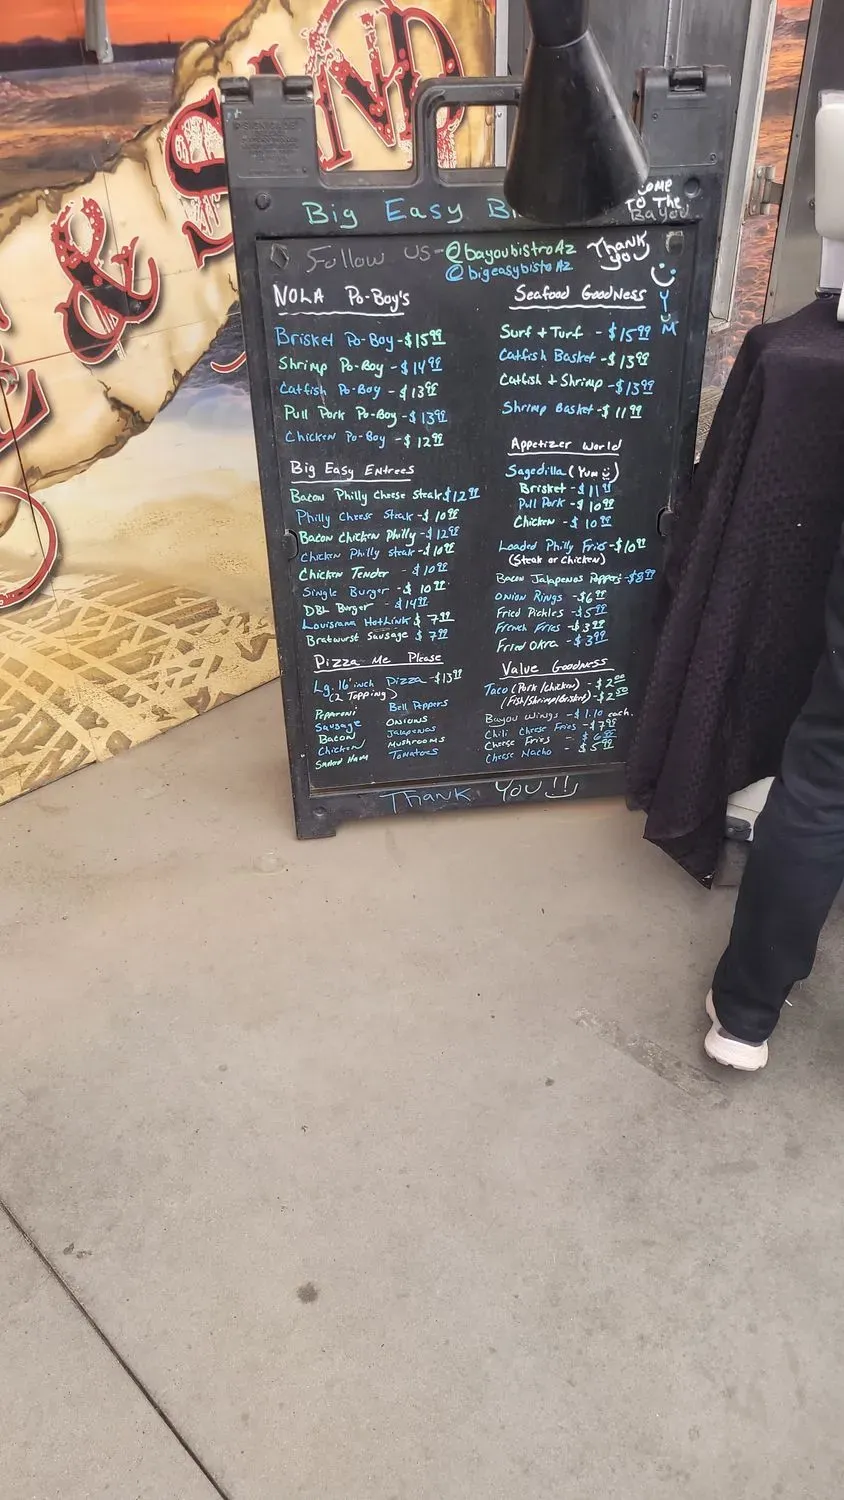 & SAND
Big Easy
Come
To The
Bayou
Follow us - @bayoubistroAz
@bigeasybistoAz
Thank
you
YUM
NOLA Po-Boy's
Brisket Po-Boy - $15.99
Shrimp Po-Boy - $14.99
Catfish Po-Boy - $13.99
Pull Pork Po-Boy - $13.99
Chicken Po-Boy - $12.99
Big Easy Entrees
Bacon Philly Cheese Steak $12.99
Philly Cheese Steak - $10.99
Bacon Chicken Philly - $12.99
Chicken Philly Steak - $10.99
Chicken Tender - $10.99
Single Burger - $10.99
DBL Burger - $14.99
Louisiana Hotlink $7.99
Bratwurst Sausage $7.99
Pizza Me Please
Lg. 16 inch Pizza - $13.99
(2 Topping)
Pepperoni
Sausage
Bacon
Chicken
Bell Peppers
Onions
Jalapenos
Mushrooms
Tomatoes
Seafood Goodness
Surf + Turf - $15.99
Catfish Basket - $13.99
Catfish + Shrimp - $13.99
Shrimp Basket - $11.99
Appetizer World
Sagedilla (Yum)
Brisket - $11.99
Pull Pork - $10.99
Chicken - $10.99
Loaded Philly Fries - $10.99
(Steak or Chicken)
Bacon Jalapenos Poppers - $8.99
Onion Rings - $6.99
Fried Pickles - $5.99
French Fries - $3.99
Fried Okra - $3.99
Value Goodness
Taco (Pork/chicken) - $2.00
(Fish/Shrimp/Brisket) - $2.50
Bayou Wings - $1.10 each.
Chili Cheese Fries - $7.99
Cheese Fries - $6.99
Cheese Nacho - $5.99
Thank You!!